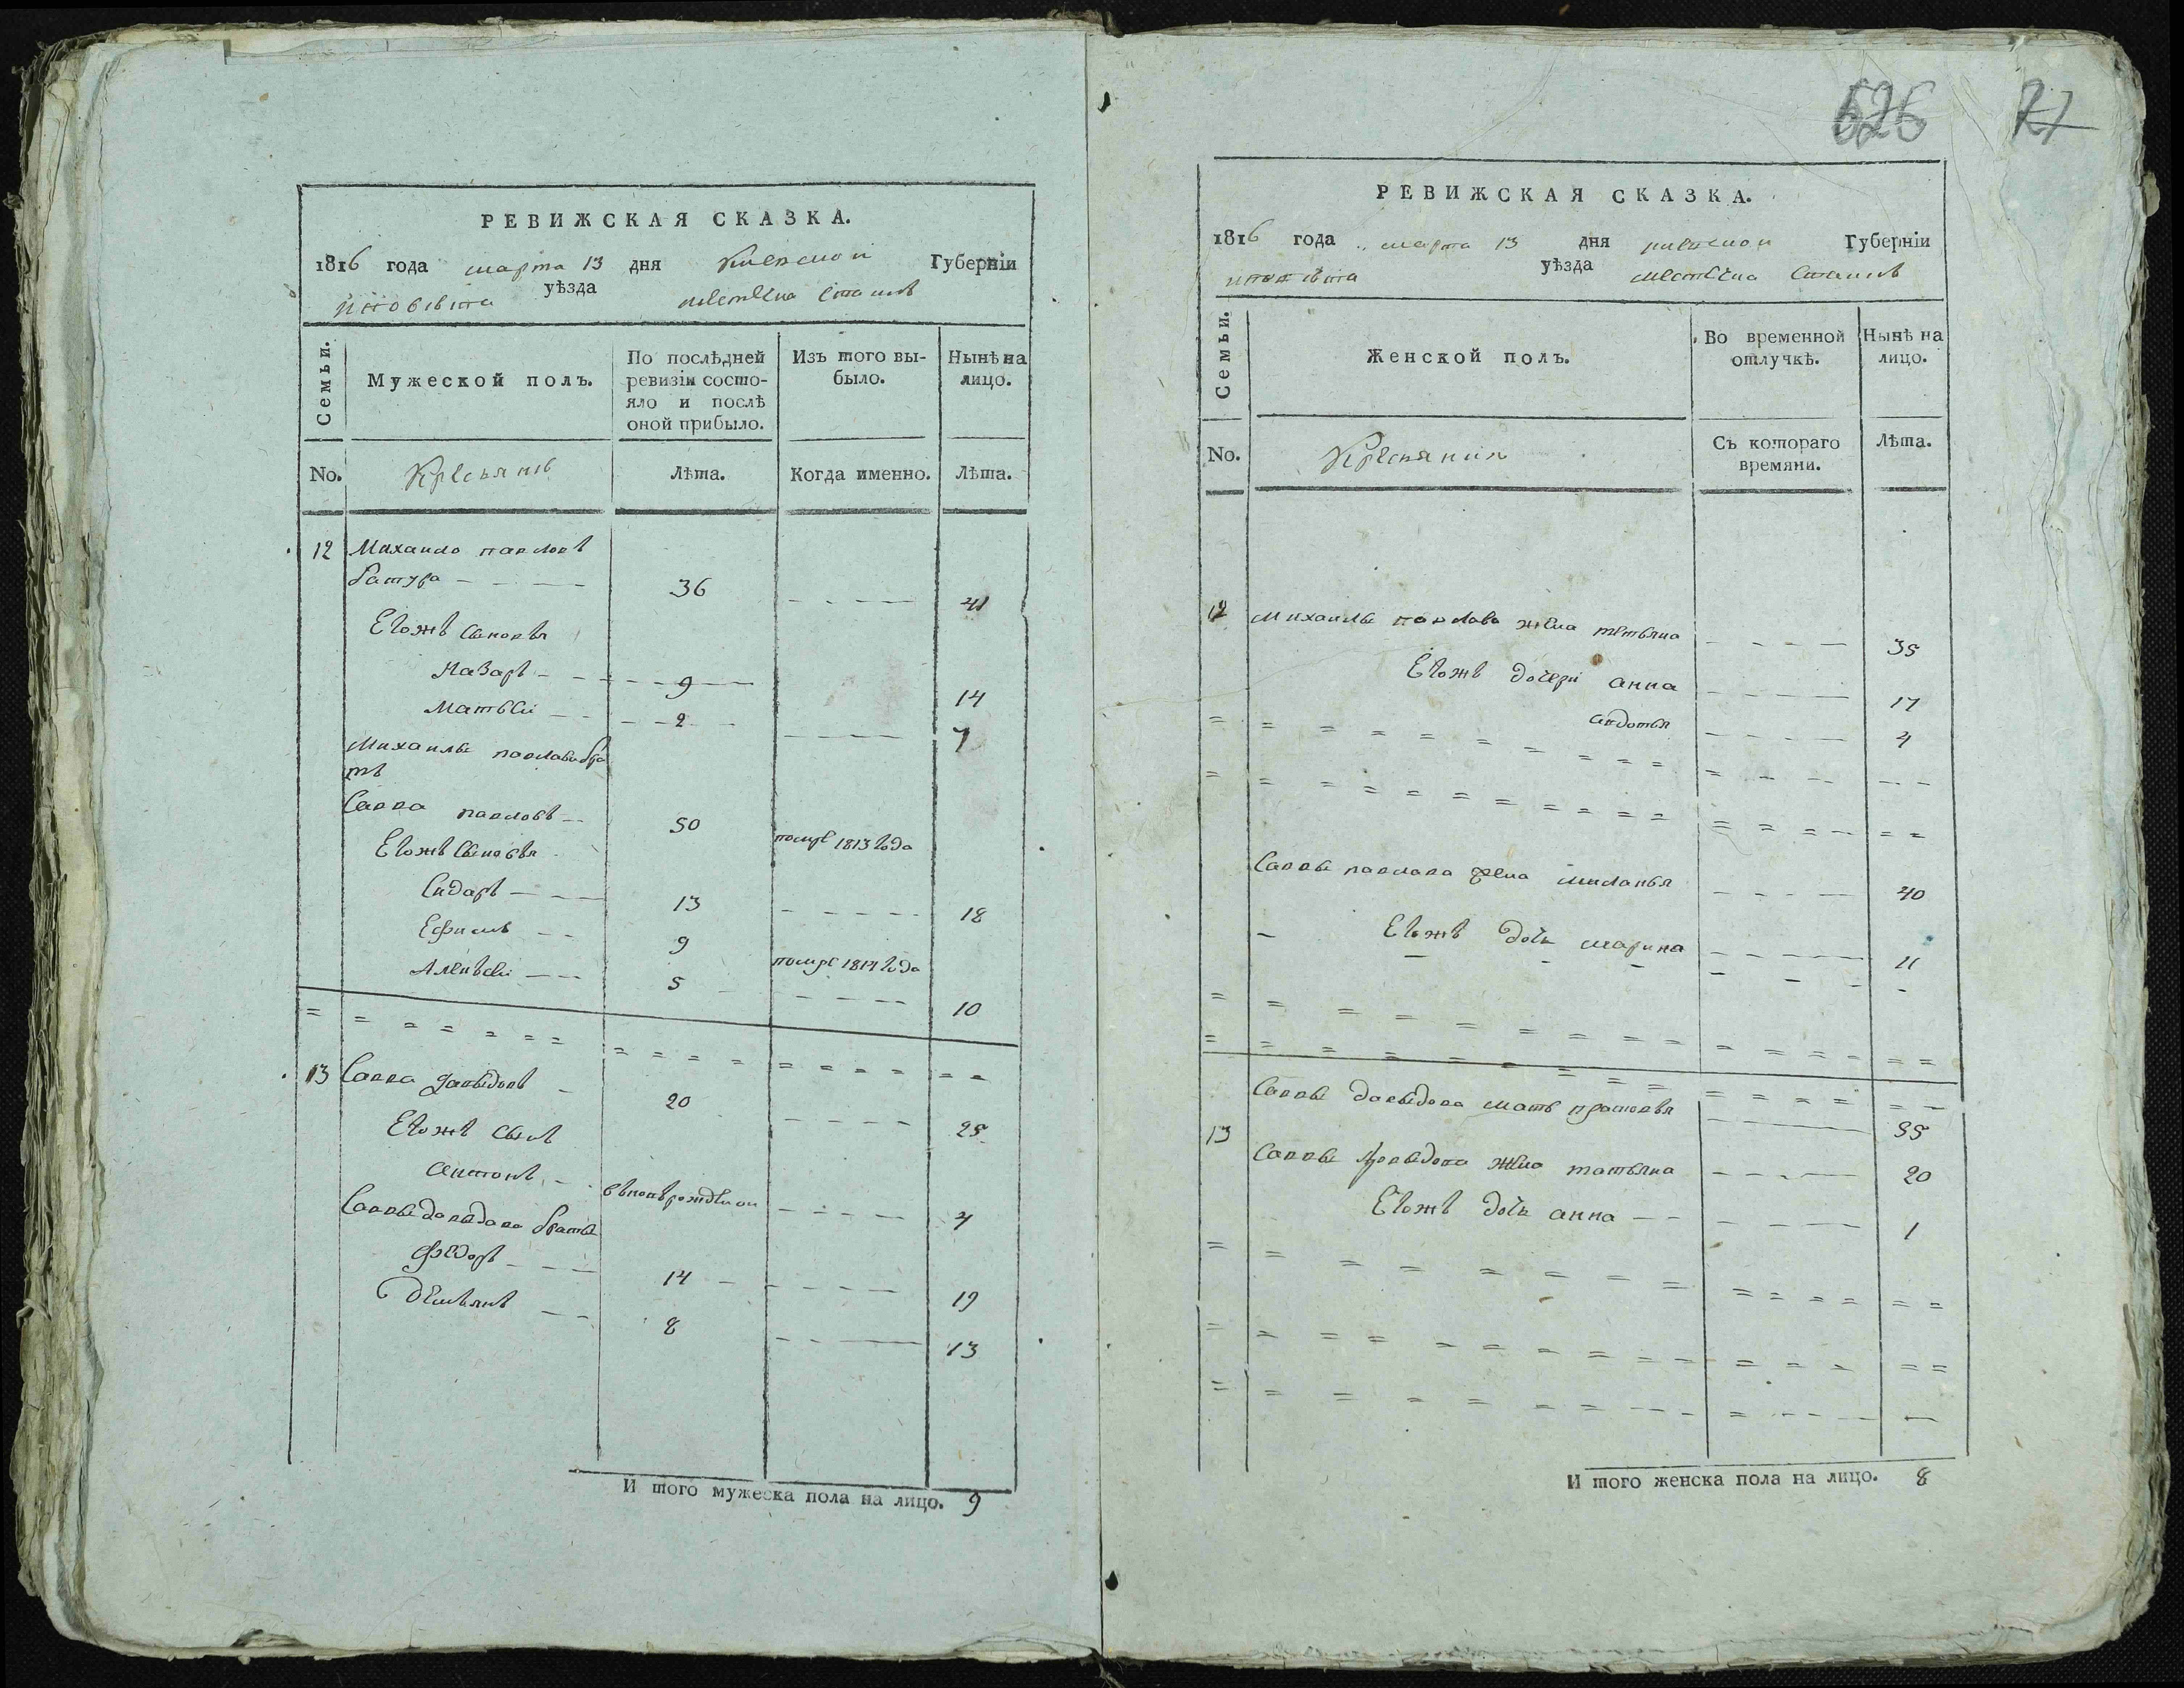 РЕВИЖСКАЯ СКАЗКА.
1816 года марта 13 дня Киевской Губерніи
уѣзда местечка
Семьи.
Мужеской полъ.
По послѣдней ревизіи состояло и послѣ оной прибыло.
Изъ того вы-было.
Нынѣ на лицо.
No. Кресьянъ Лѣта. Когда именно. Лѣта.
12 Михаило павловъ
батура 36 41
Егожъ сыновья
Назаръ 9 14
Матвѣй 2 7
Михаилы павлова бра
тъ
Савва павловъ 50 помре 1813 года
Егожъ сыновья
Сидаръ 13 18
Ефимъ 9 помре 1814 года
Алексѣй 5 10
13 Савва давыдовъ 20 25
Егожъ сынъ
антонъ вновьрожденои 4
Саввы давыдова братья
Федоръ 14 19
Демьянъ 8 13
И того мужеска пола на лицо. 9
626 27
РЕВИЖСКАЯ СКАЗКА.
1816 года марта 13 дня киевской Губерніи
уѣзда местечка
Семьи.
Женской полъ.
Во временной отлучкѣ.
Нынѣ на лицо.
No. Съ котораго времяни. Лѣта.
12 Михаилы павлова жена татьяна 35
Егожъ дочери анна 17
авдотья 4
Саввы павлова жена миланья 40
Егожъ дочь марина 11
Саввы давыдова мать 55
13 Саввы давыдова жена татьяна 20
Егожъ дочь анна 1
И того женска пола на лицо. 8